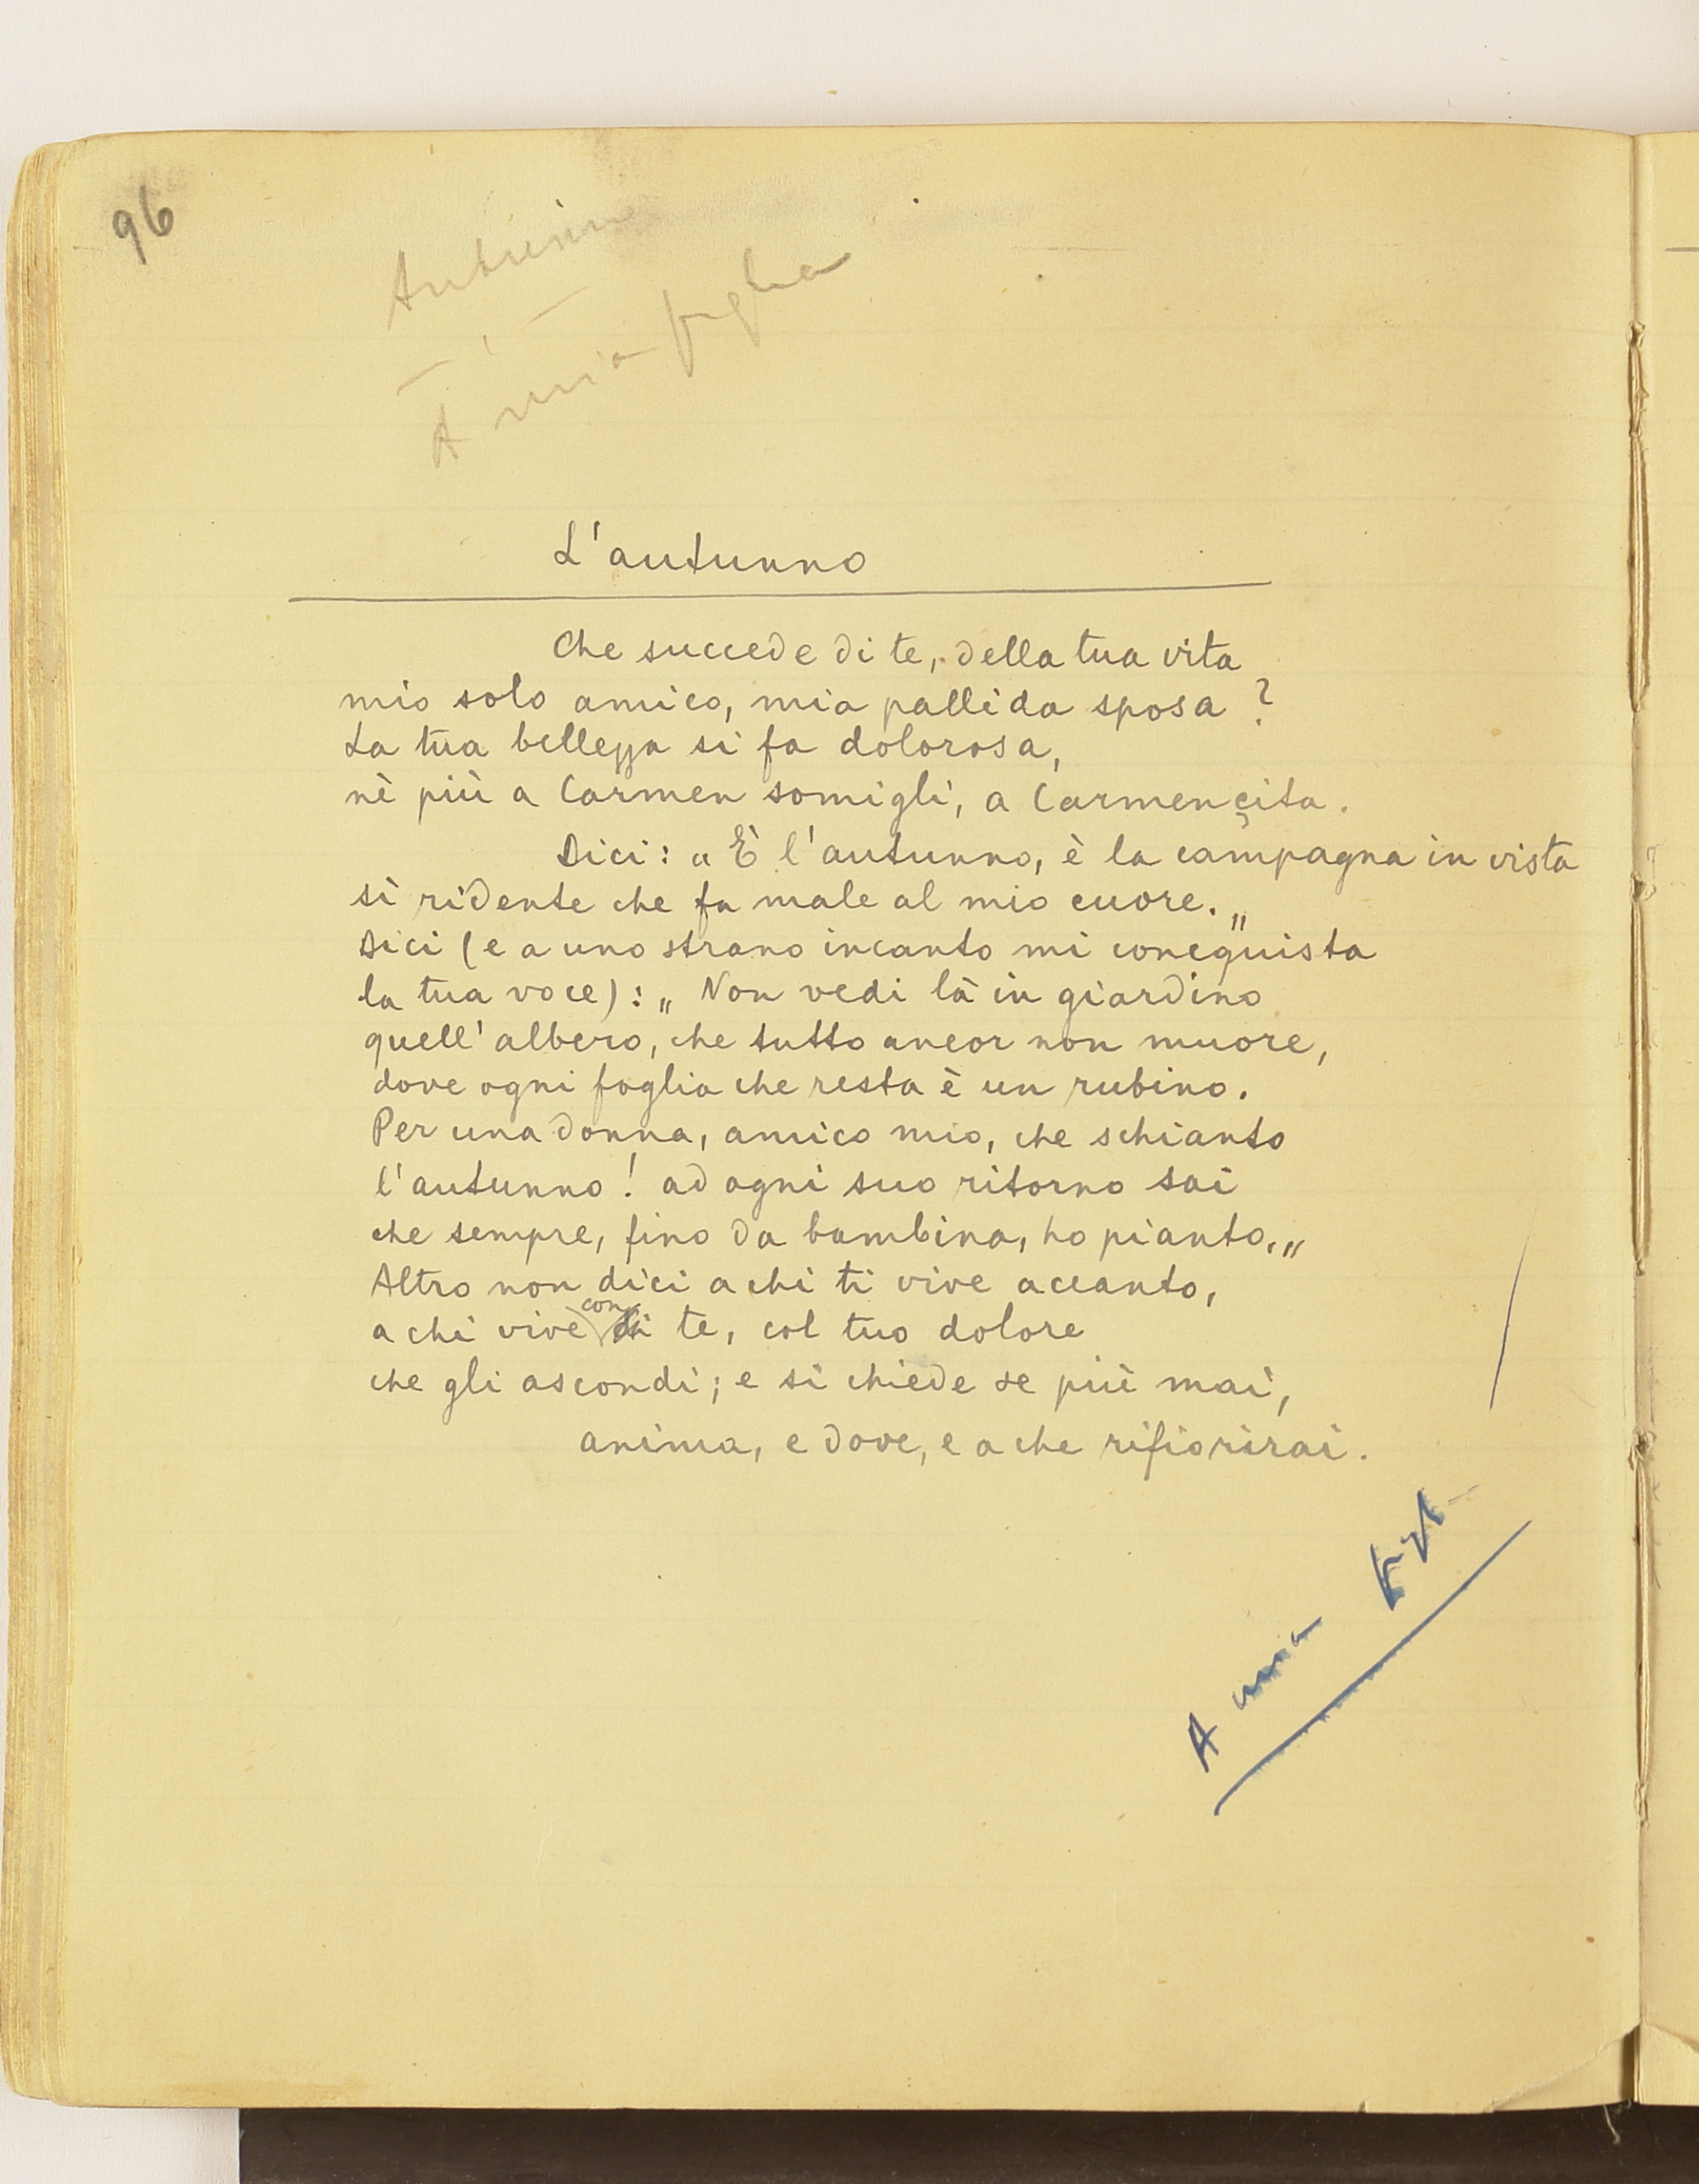 96
A mia figlia
L'autunno
Che succede di te, della tua vita
mio solo amico, mia pallida sposa?
La tua bellezza si fa dolorosa,
nè più a Carmen somigli, a Carmençita.
Dici: „ È l'autunno, è la campagna in vista
sì ridente che fa male al mio cuore. „
Dici (e a uno strano incanto mi conequista
la tua voce): „ Non vedi là in giardino
quell'albero, che tutto ancor non muore,
dove ogni foglia che resta è un rubino.
Per una donna, amico mio, che schianto
l'autunno! ad ogni suo ritorno sai
che sempre, fino da bambina, ho pianto. „
Altro non dici a chi ti vive accanto,
a chi vive con te, col tuo dolore
che gli ascondi; e si chiede se più mai,
anima, e dove, e a che rifiorirai.
A mia